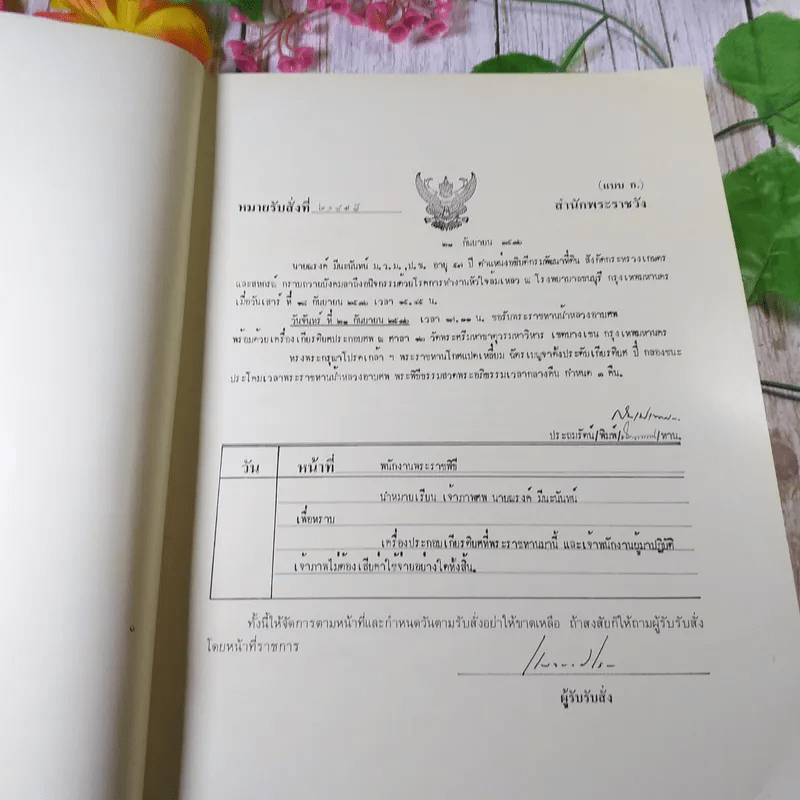 (แบบ ก.)
หมายรับสั่งที่ สำนักพระราชวัง
๒๑ กันยายน ๒๕๓๖
นายณรงค์ มีนะนันทน์ ม.ว.ม.,ป.ช. อายุ ๕๗ ปี ตำแหน่งอธิบดีกรมพัฒนาที่ดิน สังกัดกระทรวงเกษตร
และสหกรณ์ กราบถวายบังคมลาถึงอนิจกรรมด้วยโรคการทำงานหัวใจล้มเหลว ณ โรงพยาบาลธนบุรี กรุงเทพมหานคร
เมื่อวันเสาร์ ที่ ๑๘ กันยายน ๒๕๓๖ เวลา น.
วันจันทร์ ที่ ๒๑ กันยายน ๒๕๓๖ เวลา น. ขอรับพระราชทานน้ำหลวงอาบศพ
พร้อมด้วยเครื่องเกียรติยศประกอบศพ ณ ศาลา วัดพระศรีมหาธาตุวรมหาวิหาร เขตบางเขน กรุงเทพมหานคร
ทรงพระกรุณาโปรดเกล้า ฯ พระราชทานโกศแปดเหลี่ยม ฉัตรเบญจาตั้งประดับเกียรติยศ ปี่ กลองชนะ
ประโคมเวลาพระราชทานน้ำหลวงอาบศพ พระพิธีธรรมสวดพระอภิธรรมเวลากลางคืน กำหนด ๓ คืน.
ประถมรัตน์/พิมพ์/ /ทาน.
วัน หน้าที่ พนักงานพระราชพิธี
นำหมายเรียน เจ้าภาพศพ นายณรงค์ มีนะนันทน์
เพื่อทราบ
เครื่องประกอบเกียรติยศที่พระราชทานมานี้ และเจ้าพนักงานผู้มาปฏิบัติ
เจ้าภาพไม่ต้องเสียค่าใช้จ่ายอย่างใดทั้งสิ้น.
ทั้งนี้ให้จัดการตามหน้าที่และกำหนดวันตามรับสั่งอย่าให้ขาดเหลือ ถ้าสงสัยก็ให้ถามผู้รับรับสั่ง
โดยหน้าที่ราชการ
ผู้รับรับสั่ง